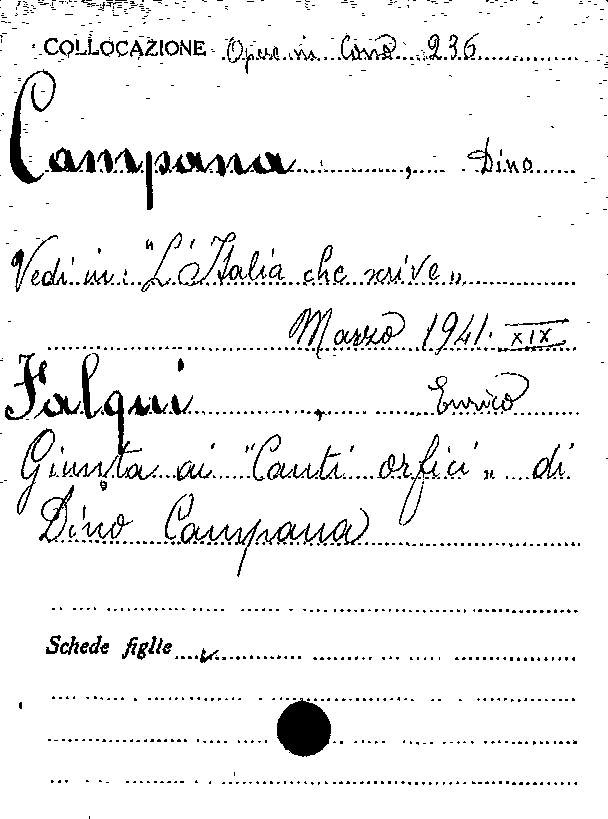 COLLOCAZIONE Opere in Cons 236
Campana, Dino
Vedi in: "L'Italia che scrive„
Marzo 1941. XIX
Falqui, Enrico
Giunta ai "Canti orfici„ di
Dino Campana
Schede figlie